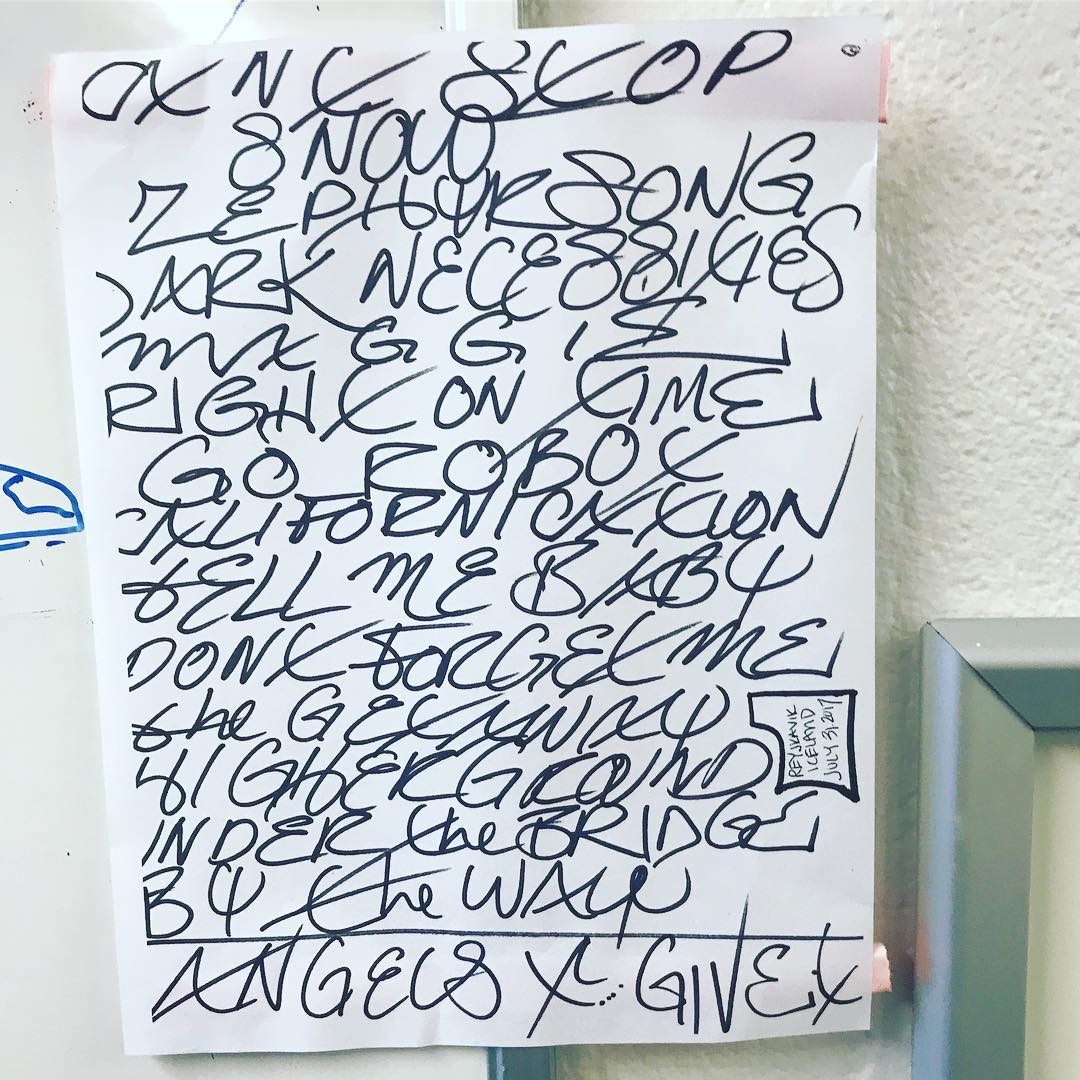 CAN'T STOP
SNOW
ZEPHYR SONG
DARK NECESSITIES
MY G G IS
RIGHT ON TIME
GO ROBOT
CALIFORNICATION
TELL ME BABY
DONT FORGET ME
the GETAWAY
HIGHER GROUND
UNDER the BRIDGE
BY the WAY
ANGELS X... GIVE IT
REYJKAVIK
ICELAND
JULY 31 2017